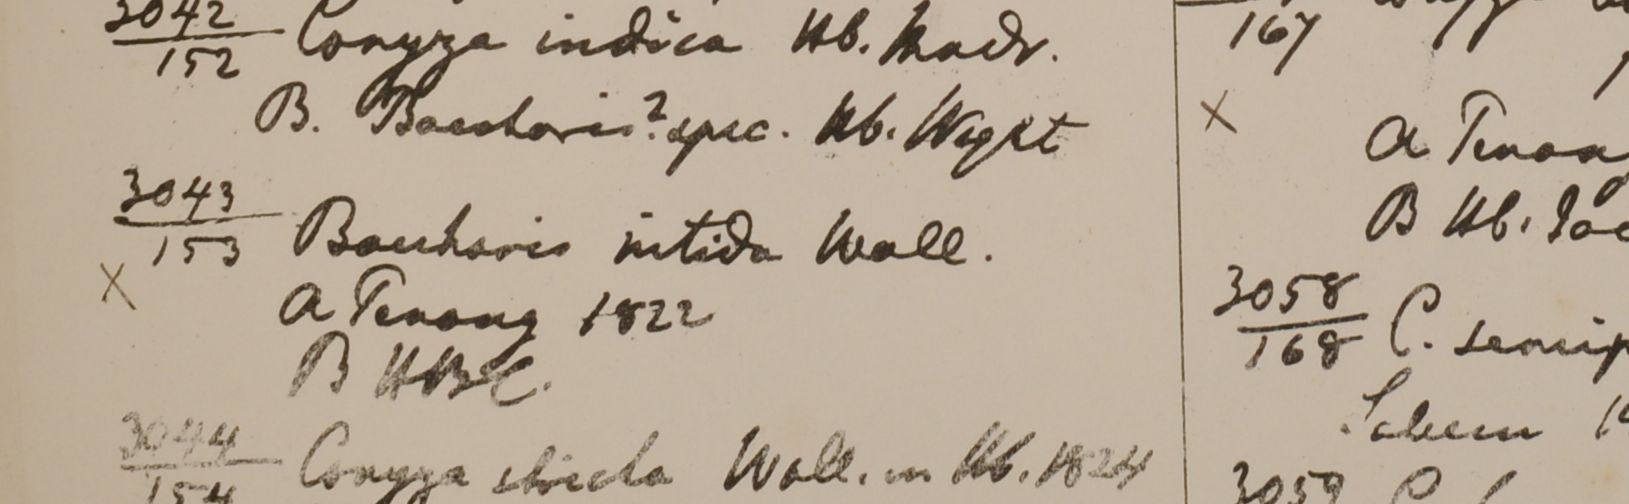 3042
152 Conyza indica Hb. Madr.
B. Baccharis? spec. Hb. Wight
3043
153 Baccharis nitida Wall.
X
A Penang 1822
B HBC.
3044
154 Conyza stricta Wall. in Hb. 1824
167
X
A Penang
B Hb.
3058
168 C.
3059 C.